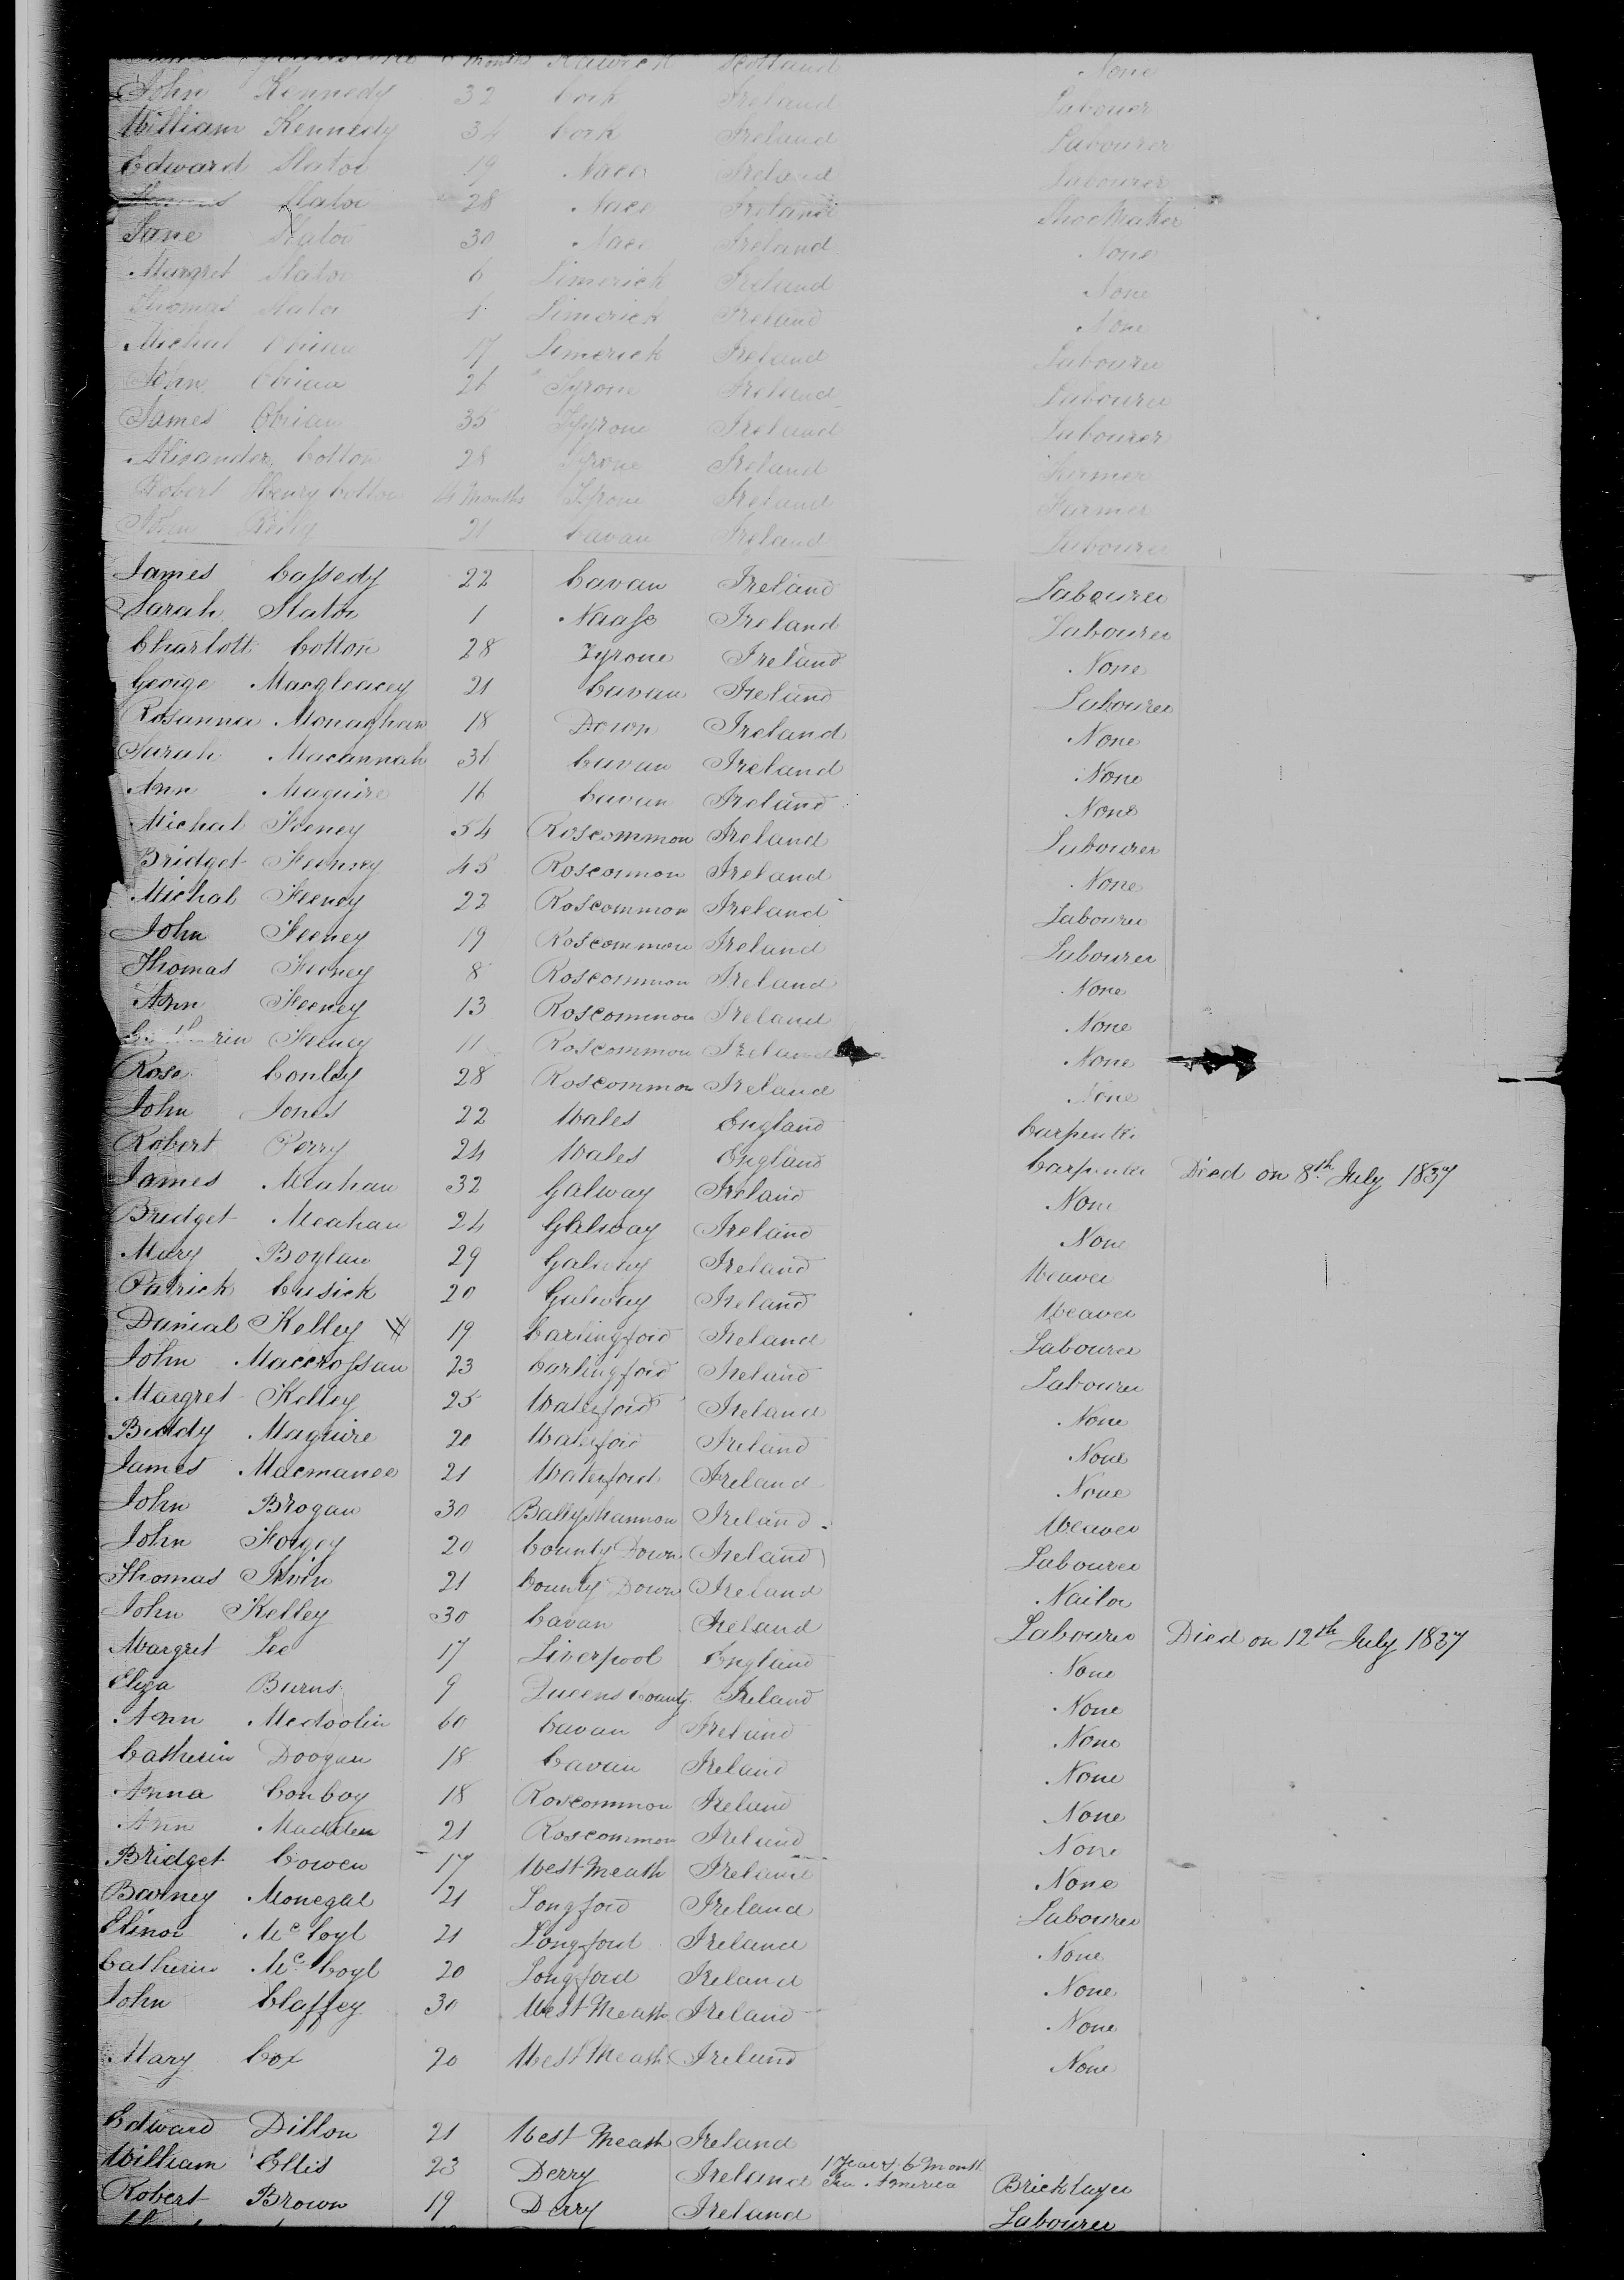 Months Hawick Scotland None
John Kennedy 32 Cork Ireland Labourer
William Kennedy 34 Cork Ireland Labourer
Edward Slator 19 Nace Ireland Labourer
Slator 28 Nace Ireland Shoe Maker
Jane Slator 30 Nace Ireland None
Margret Slator 6 Limerick Ireland None
Thomas Slator Limerick Ireland None
Michal Obrian 17 Limerick Ireland Labourer
John Obrian 26 Tyrone Ireland Labourer
James Obrian 35 Tyrone Ireland Labourer
Alixander Cotton 28 Tyrone Ireland Farmer
Robert Henry Cotton Months Tyrone Ireland Farmer
John Reily 21 Cavan Ireland Labourer
James Cassedy 22 Cavan Ireland Labourer
Sarah Slator 1 Naase Ireland Labourer
Charlott Cotton 28 Tyrone Ireland None
George Macgleacey 21 Cavan Ireland Labourer
Rosanna Monaghan 18 Down Ireland None
Sarah Macannah 36 Cavan Ireland None
Ann Maguire 16 Cavan Ireland None
Michal Feeney 54 Roscommon Ireland Labourer
Bridget Feeney 45 Roscomon Ireland None
Michal Feeney 22 Roscommon Ireland Labourer
John Feeney 19 Roscommon Ireland Labourer
Thomas Feeney 8 Roscommon Ireland None
Ann Feeney 13 Roscommon Ireland None
Feeney 11 Roscommon Ireland None
Rose Conley 28 Roscommon Ireland None
John Jones 22 Wales England Carpenter
Robert Perry 24 Wales England Carpenter Died on 8th July 1837
James Meahan 32 Galway Ireland None
Bridget Meahan 24 Galway Ireland None
Mary Boylan 29 Galway Ireland Weaver
Patrick Cusick 20 Galway Ireland Weaver
Danial Kelley 19 Carlingford Ireland Labourer
John Maccrossan 23 Carlingford Ireland Labourer
Margret Kelley 25 Waterford Ireland None
Biddy Maguire 20 Waterford Ireland None
James Macmanee 21 Waterford Ireland None
John Brogan 30 Ballyshannon Ireland Weaver
John Forgey 20 County Down Ireland Labourer
Thomas Irwin 21 County Down Ireland Nailor
John Kelley 30 Cavan Ireland Labourer Died on 12th July 1837
Margret Lee 17 Liverpool England None
Eliza Burns 9 Queens County Ireland None
Ann Medoolin 60 Cavan Ireland None
Catherin Doogan 18 Cavan Ireland None
Anna Conboy 18 Roscommon Ireland None
Ann Madden 21 Roscommon Ireland None
Bridget Cowen 17 West Meath Ireland None
Barney Monegal 21 Longford Ireland Labourer
Elinor Mc Coyl 21 Longford Ireland None
Catherin Mc Coyl 20 Longford Ireland None
John Claffey 30 West Meath Ireland None
Mary Cox 20 West Meath Ireland None
Edward Dillon 21 West Meath Ireland
William Ellis 23 Derry Ireland 1 Year & 6 Month In America Brick Layer
Robert Brown 19 Derry Ireland Labourer